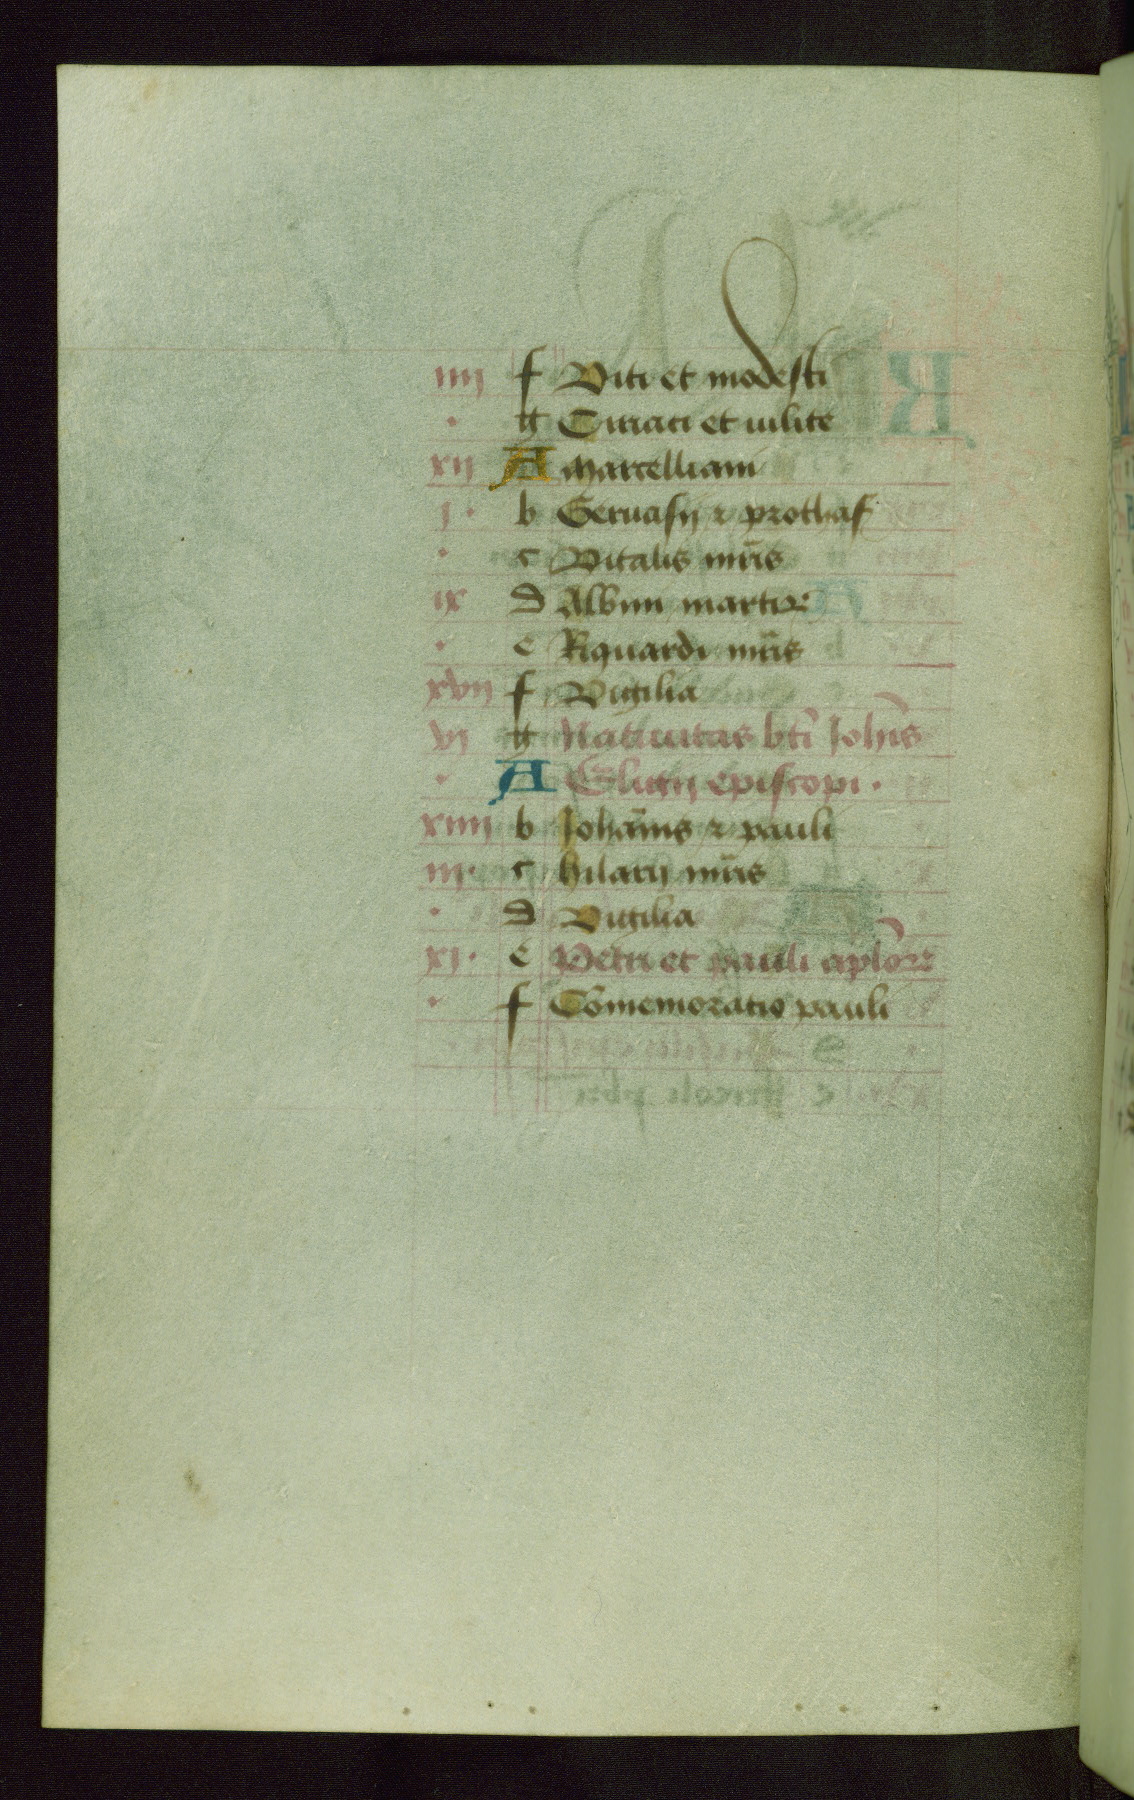 iiii f Viti et modesti
· g Ciriaci et iulite
xii A Marcelliani
i · b Geruasij ⁊ prothas
· c Vitalis mr̄is
ix d Albini martir
· e Riquardi mr̄is
xvii f Vigilia
vi g Natiuitas bt̄i Joh̄is
· A Eligij episcopi ·
xiiii b Johān̄is ⁊ pauli
iii · c hilarij mr̄is
· d Vigilia
xi · e Petri et pauli apl̄or
· f Cōmemoratio pauli